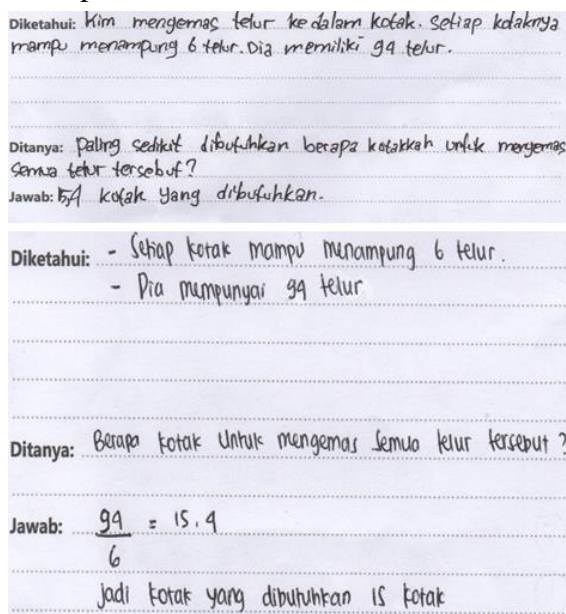 Diketahui: Kim mengemas telur ke dalam kotak. Setiap kotaknya
mampu menampung 6 telur. Dia memiliki 94 telur.
Ditanya: Paling sedikit dibutuhkan berapa kotakkah untuk mengemas
semua telur tersebut?
Jawab: 5,4 kotak yang dibutuhkan.
Diketahui: - Setiap kotak mampu menampung 6 telur.
- Dia mempunyai 94 telur
Ditanya: Berapa kotak untuk mengemas semua telur tersebut?
Jawab: 94 = 15.4
6
Jadi kotak yang dibutuhkan 15 kotak